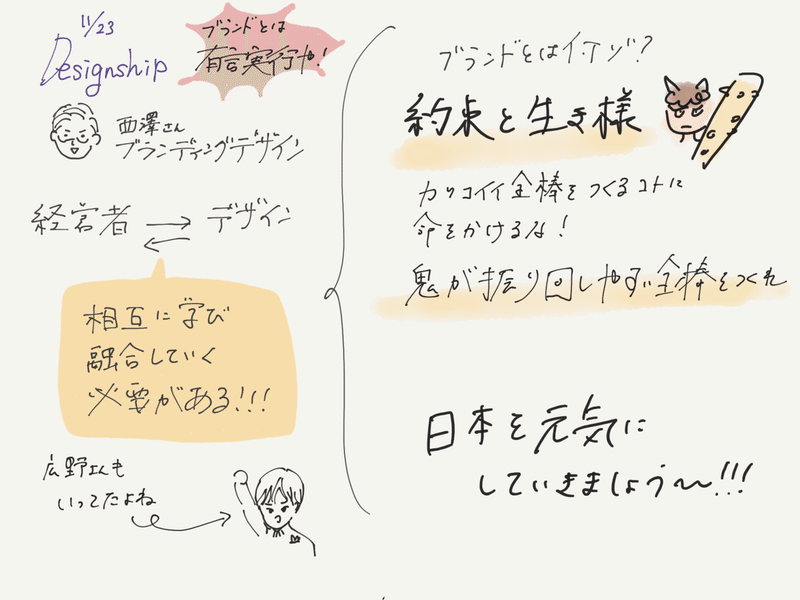 11/23
Designship
ブランドとは
有言実行や!
西澤さん
ブランディングデザイン
経営者 デザイン
相互に学び
融合していく
必要がある!!!
広野さんも
いってたよね
ブランドとはイケゾ?
約束と生き様
カッコイイ金棒をつくるコトに
命をかけるな!
鬼が振り回しやすい金棒をつくれ
日本を元気に
していきましょう〜!!!